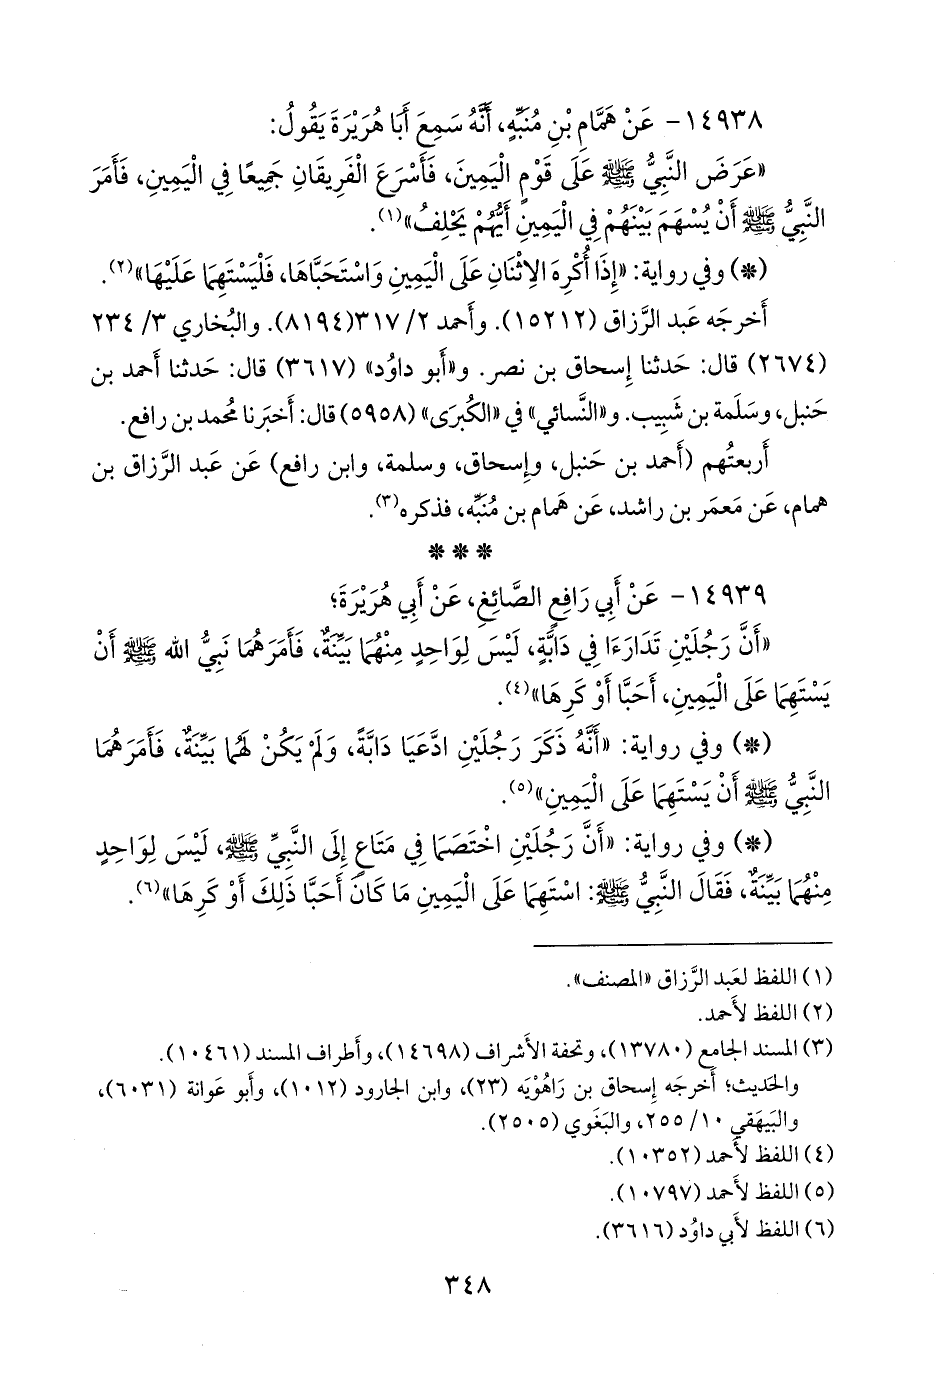 ١٤٩٣٨- عَنْ هَمَّامِ بْنِ مُنَبِّهٍ، أَنَّهُ سَمِعَ أَبَا هُرَيْرَةَ يَقُولُ:
«عَرَضَ النَّبِيُّ ﷺ عَلَى قَوْمٍ الْيَمِينَ، فَأَسْرَعَ الْفَرِيقَانِ جَمِيعًا فِي الْيَمِينِ، فَأَمَرَ
النَّبِيُّ ﷺ أَنْ يُسْهَمَ بَيْنَهُمْ فِي الْيَمِينِ أَيُّهُمْ يَحْلِفُ»(١).
(*) وفي رواية: «إِذَا أُكْرِهَ الِاثْنَانِ عَلَى الْيَمِينِ وَاسْتَحَبَّاهَا، فَلْيَسْتَهِمَا عَلَيْهَا»(٢).
أَخرجَه عَبد الرَّزاق (١٥٢١٢). وأَحمد ٢/ ٣١٧(٨١٩٤). والبُخاري ٣/ ٢٣٤
(٢٦٧٤) قال: حَدثنا إِسحاق بن نصر. و«أَبو داوُد» (٣٦١٧) قال: حَدثنا أَحمد بن
حَنبل، وسَلَمة بن شَبِيب. و«النَّسائي» في «الكُبرَى» (٥٩٥٨) قال: أَخبَرنا مُحمد بن رافع.
أَربعتُهم (أَحمد بن حَنبل، وإِسحاق، وسلمة، وابن رافع) عَن عَبد الرَّزاق بن
همام، عَن مَعمَر بن راشد، عَن هَمام بن مُنَبِّه، فذكره(٣).
* * *
١٤٩٣٩- عَنْ أَبِي رَافِعٍ الصَّائِغِ، عَنْ أَبِي هُرَيْرَةَ؛
«أَنَّ رَجُلَيْنِ تَدَارَءَا فِي دَابَّةٍ، لَيْسَ لِوَاحِدٍ مِنْهُمَا بَيِّنَةٌ، فَأَمَرَهُمَا نَبِيُّ الله ﷺ أَنْ
يَسْتَهِمَا عَلَى الْيَمِينِ، أَحَبَّا أَوْ كَرِهَا»(٤).
(*) وفي رواية: «أَنَّهُ ذَكَرَ رَجُلَيْنِ ادَّعَيَا دَابَّةً، وَلَمْ يَكُنْ لَهُمَا بَيِّنَةٌ، فَأَمَرَهُمَا
النَّبِيُّ ﷺ أَنْ يَسْتَهِمَا عَلَى الْيَمِينِ»(٥).
(*) وفي رواية: «أَنَّ رَجُلَيْنِ اخْتَصَمَا فِي مَتَاعٍ إِلَى النَّبِيِّ ﷺ، لَيْسَ لِوَاحِدٍ
مِنْهُمَا بَيِّنَةٌ، فَقَالَ النَّبِيُّ ﷺ: اسْتَهِمَا عَلَى الْيَمِينِ مَا كَانَ أَحَبَّا ذَلِكَ أَوْ كَرِهَا»(٦).
(١) اللفظ لعَبد الرَّزاق «المصنف».
(٢) اللفظ لأَحمد.
(٣) المسند الجامع (١٣٧٨٠)، وتحفة الأشراف (١٤٦٩٨)، وأطراف المسند (١٠٤٦١).
والحَديث؛ أَخرجَه إِسحاق بن رَاهُوْيَه (٢٣)، وابن الجارود (١٠١٢)، وأَبو عَوانة (٦٠٣١)،
والبَيهَقي ١٠/ ٢٥٥، والبَغَوي (٢٥٠٥).
(٤) اللفظ لأَحمد (١٠٣٥٢).
(٥) اللفظ لأَحمد (١٠٧٩٧).
(٦) اللفظ لأَبي داوُد (٣٦١٦).
٣٤٨